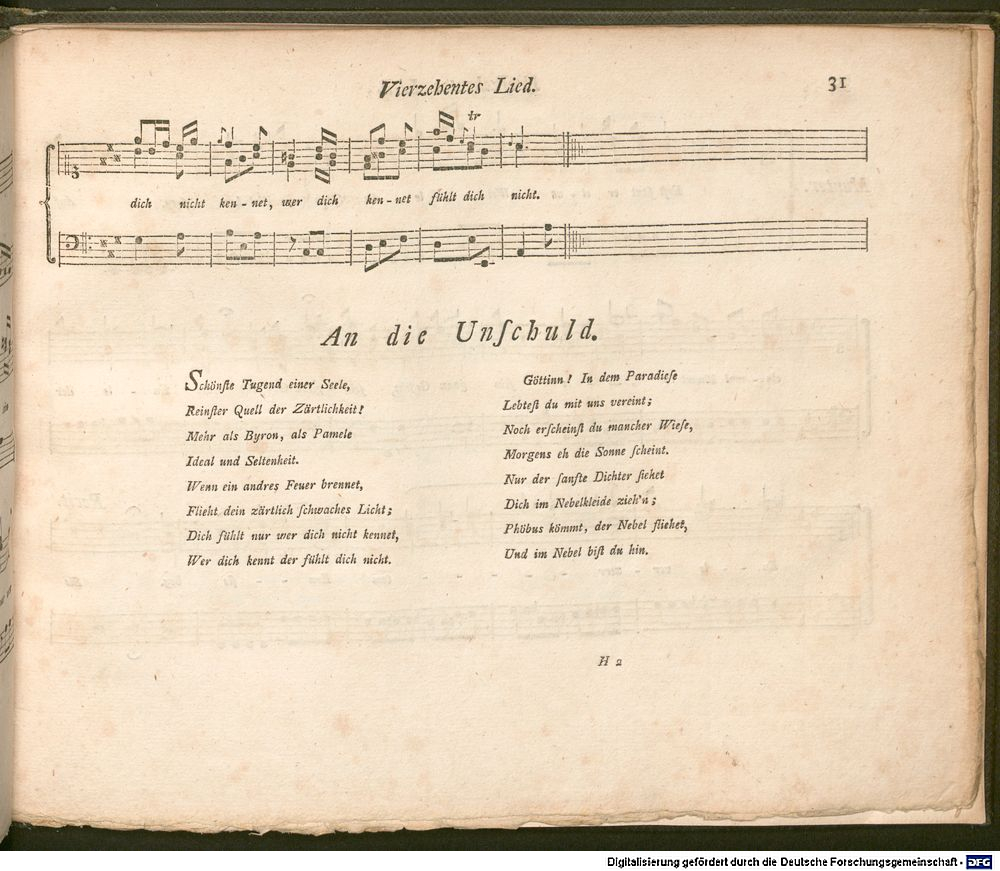 Vierzehentes Lied.
31
tr
dich nicht ken - net, wer dich ken - net fühlt dich nicht.
An die Unſchuld.
Schönſte Tugend einer Seele,
Reinſter Quell der Zärtlichkeit!
Mehr als Byron, als Pamele
Ideal und Seltenheit.
Wenn ein andres Feuer brennet,
Flieht dein zärtlich ſchwaches Licht;
Dich fühlt nur wer dich nicht kennet,
Wer dich kennt der fühlt dich nicht.
Göttinn! In dem Paradieſe
Lebteſt du mit uns vereint;
Noch erſcheinſt du mancher Wieſe,
Morgens eh die Sonne ſcheint.
Nur der ſanfte Dichter ſiehet
Dich im Nebelkleide zieh'n;
Phöbus kömmt, der Nebel fliehet,
Und im Nebel biſt du hin.
H 2
Digitalisierung gefördert durch die Deutsche Forschungsgemeinschaft - DFG